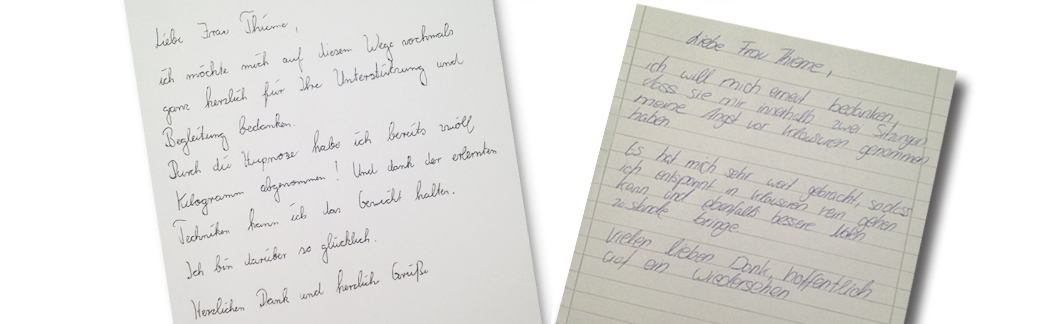 Liebe Frau Thieme,
ich möchte mich auf diesem Wege nochmals
ganz herzlich für Ihre Unterstützung und
Begleitung bedanken.
Durch die Hypnose habe ich bereits zwölf
Kilogramm abgenommen! Und dank der erlernten
Techniken kann ich das Gewicht halten.
Ich bin darüber so glücklich.
Herzlichen Dank und herzlich Grüße
Liebe Frau Thieme,
ich will mich erneut bedanken,
dass sie mir innerhalb zwei Sitzungen
meine Angst vor Klausuren genommen
haben.
Es hat mich sehr weit gebracht, sodass
ich entspannt in Klausuren rein gehen
kann und ebenfalls bessere Noten
zustande bringe.
Vielen lieben Dank, hoffentlich
auf ein wiedersehen